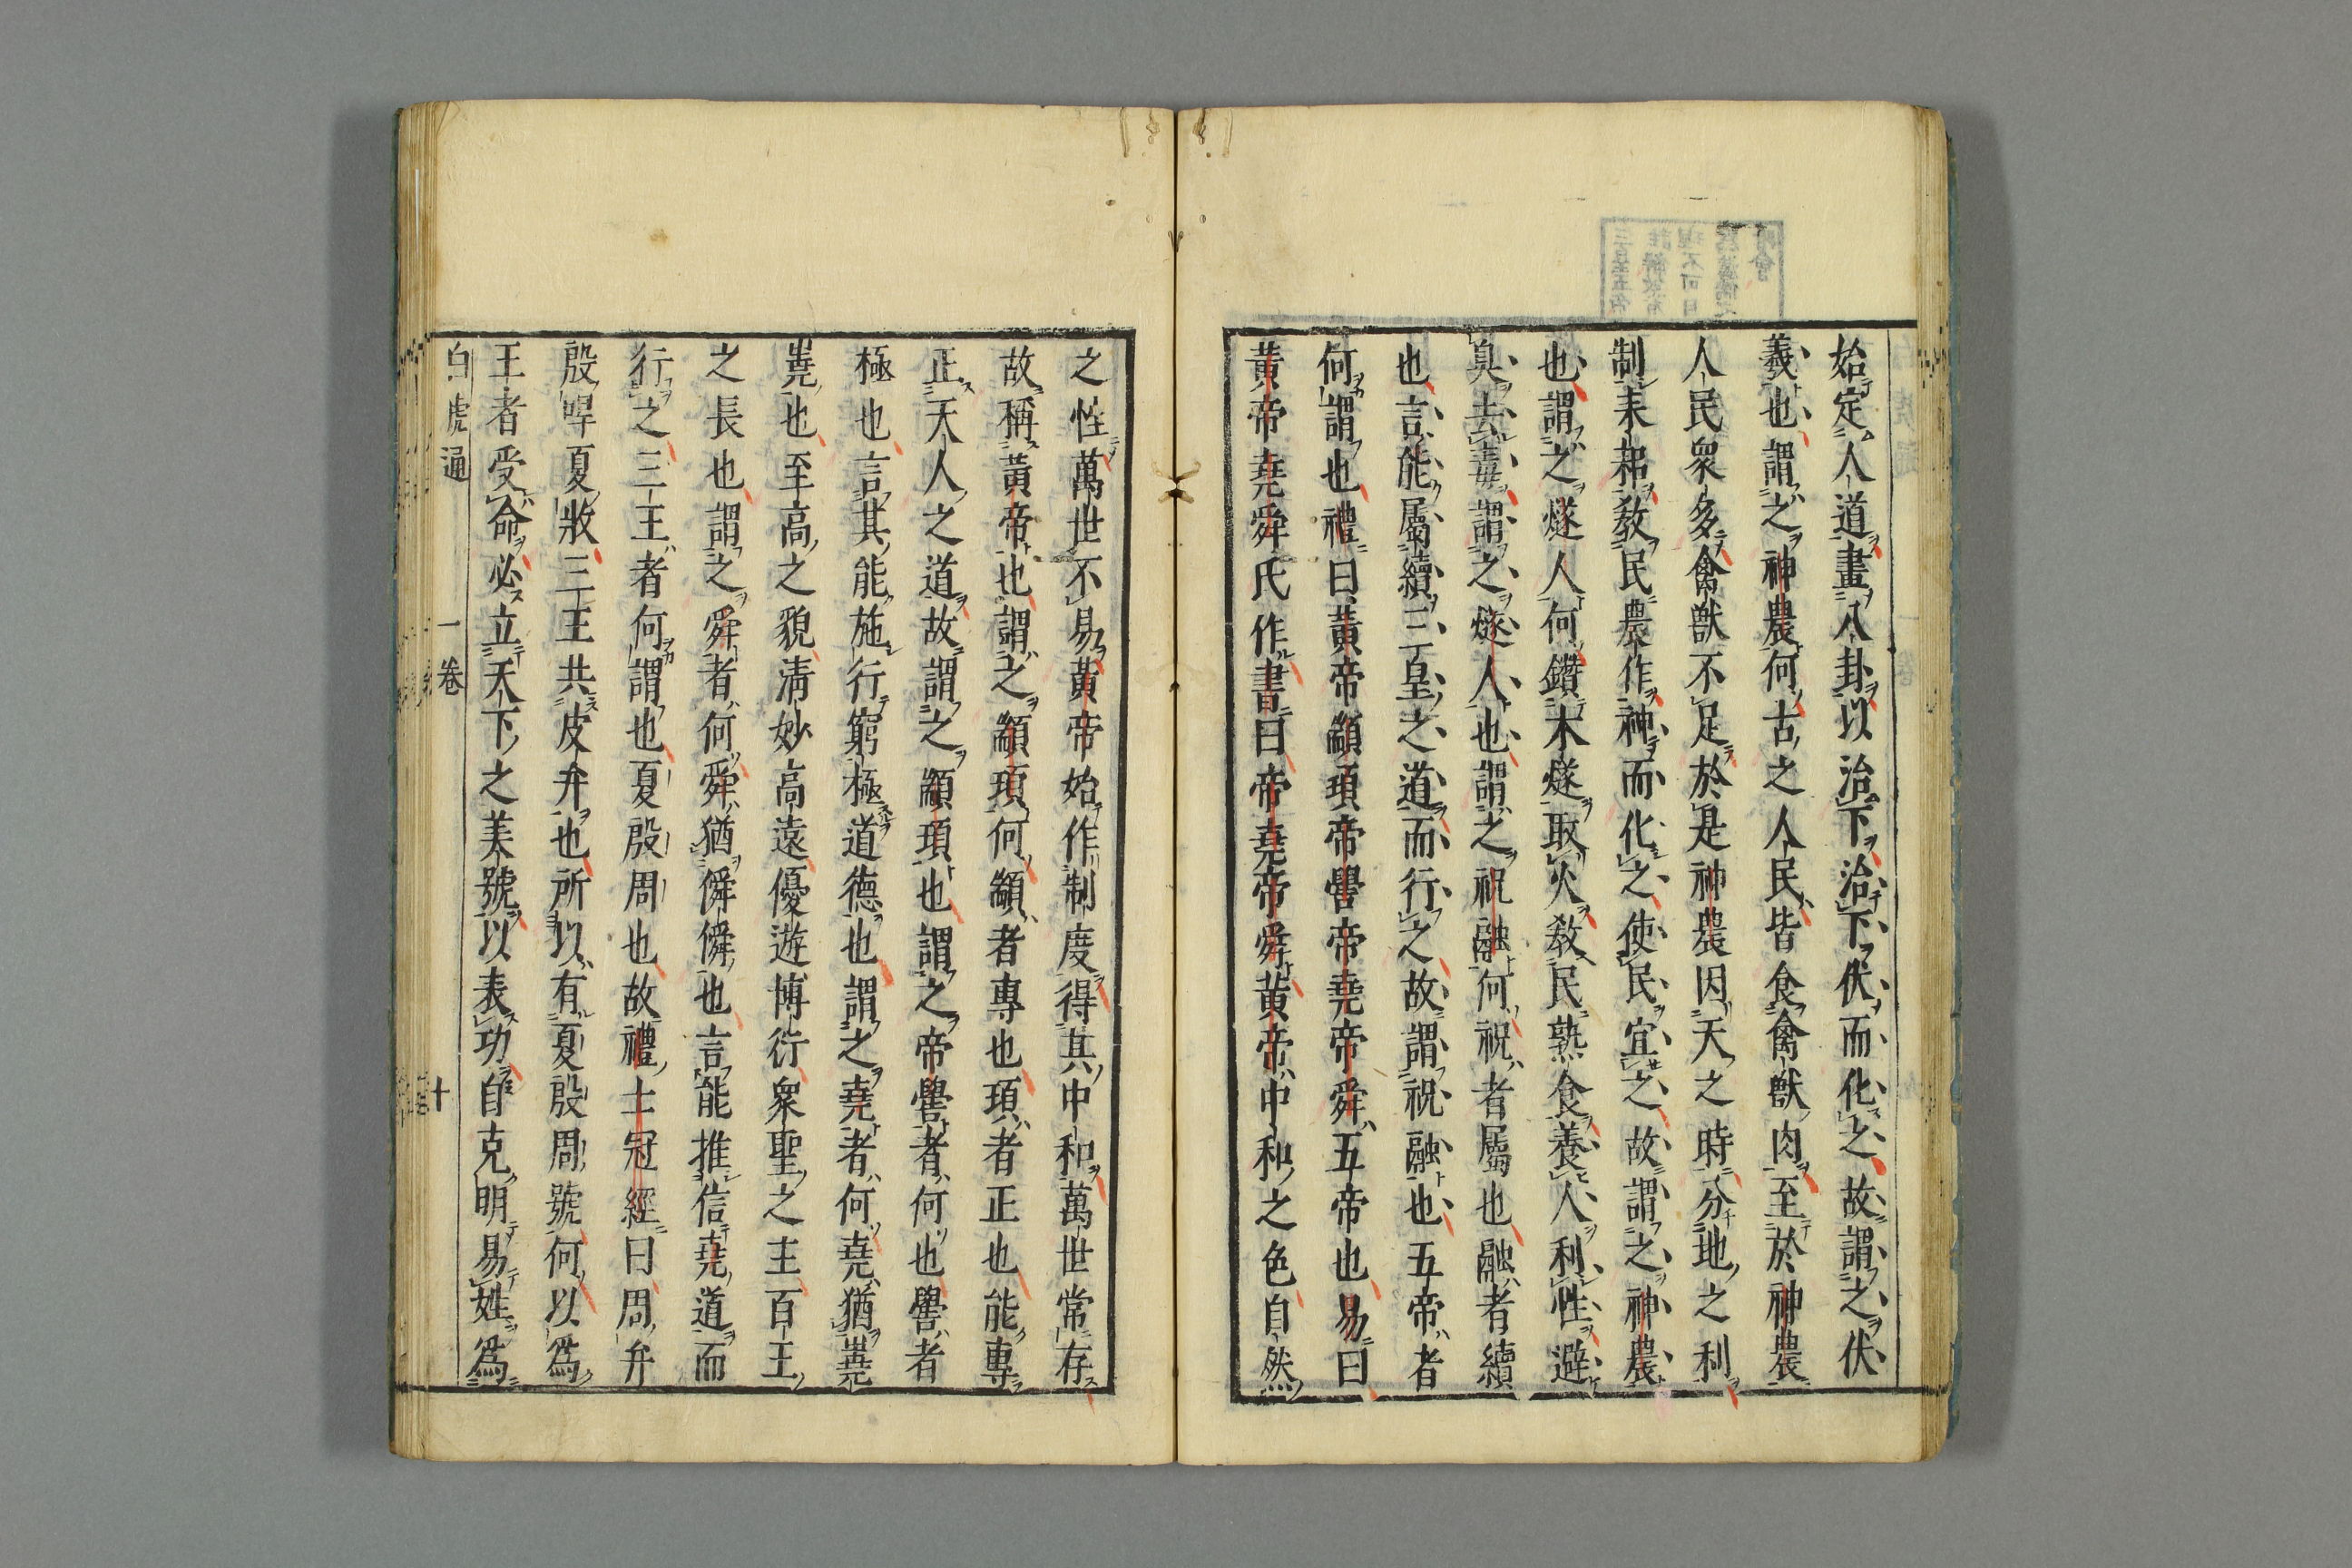 始定人道畫八卦以治下治下伏而化之故謂之伏
羲也謂之神農何古之人民皆食禽獸肉至於神農
人民衆多禽獸不足於是神農因天之時分地之利
制耒耜教民農作神而化之使民宜之故謂之神農
也謂之燧人何鑽木燧取火教民熟食養人利性避
臭去毒謂之燧人也謂之祝融何祝者屬也融者續
也言能屬續三皇之道而行之故謂祝融也五帝者
何謂也禮曰黃帝顓頊帝嚳帝堯帝舜五帝也易曰
黃帝堯舜氏作書曰帝堯帝舜黃帝中和之色自然
之性萬世不易黃帝始作制度得其中和萬世常存
故稱黃帝也謂之顓頊何顓者專也頊者正也能專
正天人之道故謂之顓頊也謂之帝嚳者何也嚳者
極也言其能施行窮極道德也謂之堯者何堯猶嶤
嶤也至高之貌淸妙高遠優遊博衍衆聖之主百王
之長也謂之舜者何舜猶僢僢也言能推信堯道而
行之三王者何謂也夏殷周也故禮士冠經曰周弁
殷哻夏收三王共皮弁也所以有夏殷周號何以爲
王者受命必立天下之美號以表功自克明易姓爲
白虎通 一卷 十